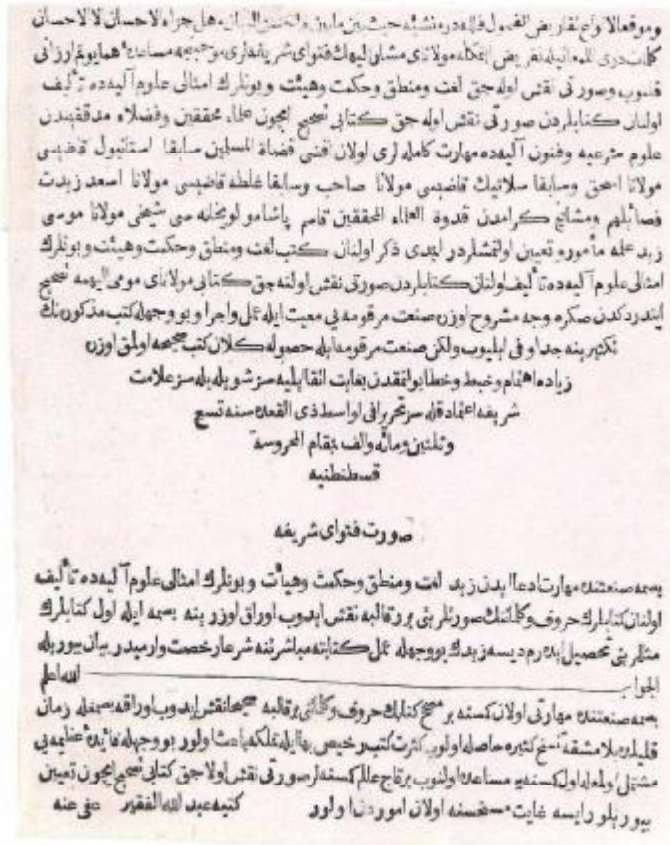 كلمات درى اللمعانيله تقريض ايتمكله مولاناى مشار اليهك فتواى شريفه لرى موجبنجه مساعدۀ همايونم ارزانى
قلنوب وصورتى نقش اوله جق لغت ومنطق وحكمت وهيئت وبونلرك امثالى علوم آليه ده تأليف
اولنان كتابلردن صورتى نقش اوله جق كتابى تصحيح ايچون علماء محققين وفضلاء مدققيندن
علوم شرعيه وفنون آليه ده مهارت كامله لرى اولان اقضى قضاة المسلمين سابقا استانبول قاضيسى
مولانا اسحق وسابقا سلانيك قاضيسى مولانا صاحب وسابقا غلطه قاضيسى مولانا اسعد زيدت
فضائلهم ومشايخ كرامدن قدوة العلماء المحققين قاسم پاشا مولويخانه سى شيخى مولانا موسى
زيد علمه مأمور وتعيين اولنمشلردر ايمدى ذكر اولنان كتب لغت ومنطق وحكمت وهيئت وبونلرك
امثالى علوم آليه ده تأليف اولنان كتابلردن صورتى نقش اولنه جق كتابى مولاناى مومى اليهمه تصحيح
ايتدردكدن صكره وجه مشروح اوزره صنعت مرقومه يى معيت ايله عمل واجرا وبو وجهله كتب مذكوره نك
تكثيرينه جد اوفى ايليوب ولكن صنعت مرقومه ايله حصوله كلان كتب صحيحه اولمق اوزره
زياده اهتمام وخبط وخطا بولنمقدن بغايت اتقا ايليه سز شويله بيله سز علامت
شريفه اعتماد قيله سز تحريرا فى اواسط ذى القعده سنه تسع
وثلثين ومائه والف بمقام المحروسه
قسطنطنيه
صورت فتواى شريفه
بصمه صنعتنده مهارت ادعا ايدن زيد لغت ومنطق وحكمت وهيأت وبونلرك امثالى علوم آليه ده تأليف
اولنان كتابلرك حروف وكلماتنك صورتلرينى بر قالبه نقش ايدوب اوراق اوزرينه بصمه ايله اول كتابلرك
مثللرينى تحصيل ايدرم ديسه زيدك بو وجهله عمل كتابته مباشرتنه شرعا رخصت وارميدر بيان بيوريله
الجواب الله اعلم
بصمه صنعتنده مهارتى اولان كمسنه بر مصحح كتابك حروف وكلماتنى بر قالبه صحيحا نقش ايدوب اوراقه بصمغله زمان
قليلده بلا مشقه نسخ كثيره حاصله اولوب كثرت كتب ورخيص بها ايله تملكه باعث اولور بو وجهله فايدۀ عظيمه يى
مشتمل اولمغله اول كمسنه يه مساعده اولنوب بر قاچ عالم كمسنه لر صورتى نقش اولاجق كتابى تصحيح ايچون تعيين
بيوريلور ايسه غايت مستحسنه اولان اموردن اولور كتبه عبد الله الفقير عفى عنه